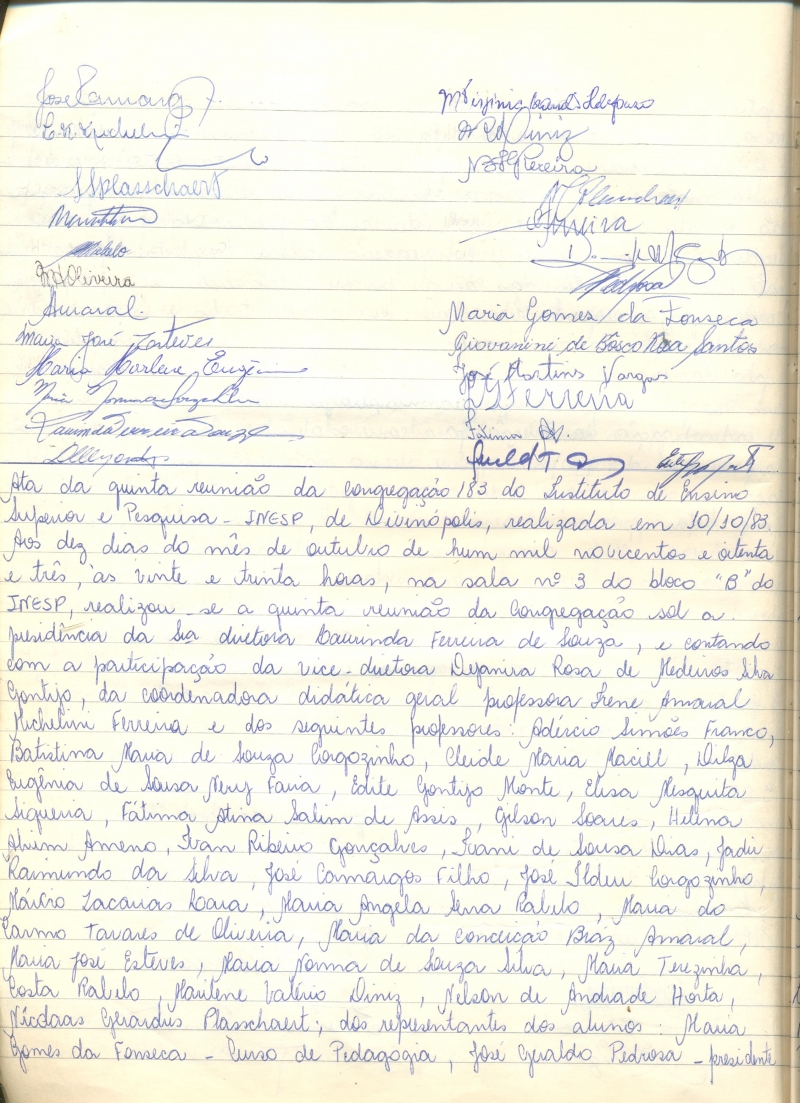 José Camargos F.
SSPlasschaert
Oliveira
Amaral.
Maria José Esteves
Maria Marlene Eugênio
Laurinda Ferreira Souza
Diniz
Pereira
Maria Gomes da Fonseca
Giovanini de Bosco Rosa Santos
José Martins Vargas
Ferreira
Fátima
Ata da quinta reunião da Congregação 183 do Instituto de Ensino
Superior e Pesquisa - INESP, de Divinópolis, realizada em 10/10/83.
Aos dez dias do mês de outubro de hum mil novecentos e oitenta
e três, às vinte e trinta horas, na sala nº 3 do bloco "B" do
INESP, realizou-se a quinta reunião da Congregação sob a
presidência da Sra diretora Laurinda Ferreira de Souza, e contando
com a participação da vice-diretora Dejanira Rosa de Medeiros Silva
Gontijo, da coordenadora didática geral professora Irene Amaral
Michelini Ferreira e dos seguintes professores: Adércio Simões Franco,
Batistina Maria de Souza Corgozinho, Cleide Maria Maciel, Dilza
Eugênia de Sousa Nery Faria, Edite Gontijo Monte, Elisa Mesquita
Siqueira, Fátima Atina Salim de Assis, Gilson Soares, Helena
Alvim Ameno, Ivan Ribeiro Gonçalves, Ivani de Sousa Dias, Jadir
Raimundo da Silva, José Camargos Filho, José Ildeu Corgozinho,
Márcio Zacarias Roara, Maria Angela Sena Rabelo, Maria do
Carmo Tavares de Oliveira, Maria da Conceição Bráz Amaral,
Maria José Esteves, Maria Norma de Souza Silva, Maria Terezinha,
Costa Rabelo, Marilene Valério Diniz, Nelson de Andrade Horta,
Nicolaas Gerardus Plasschaert; dos representantes dos alunos: Maria
Gomes da Fonseca - Curso de Pedagogia, José Geraldo Pedrosa - presidente